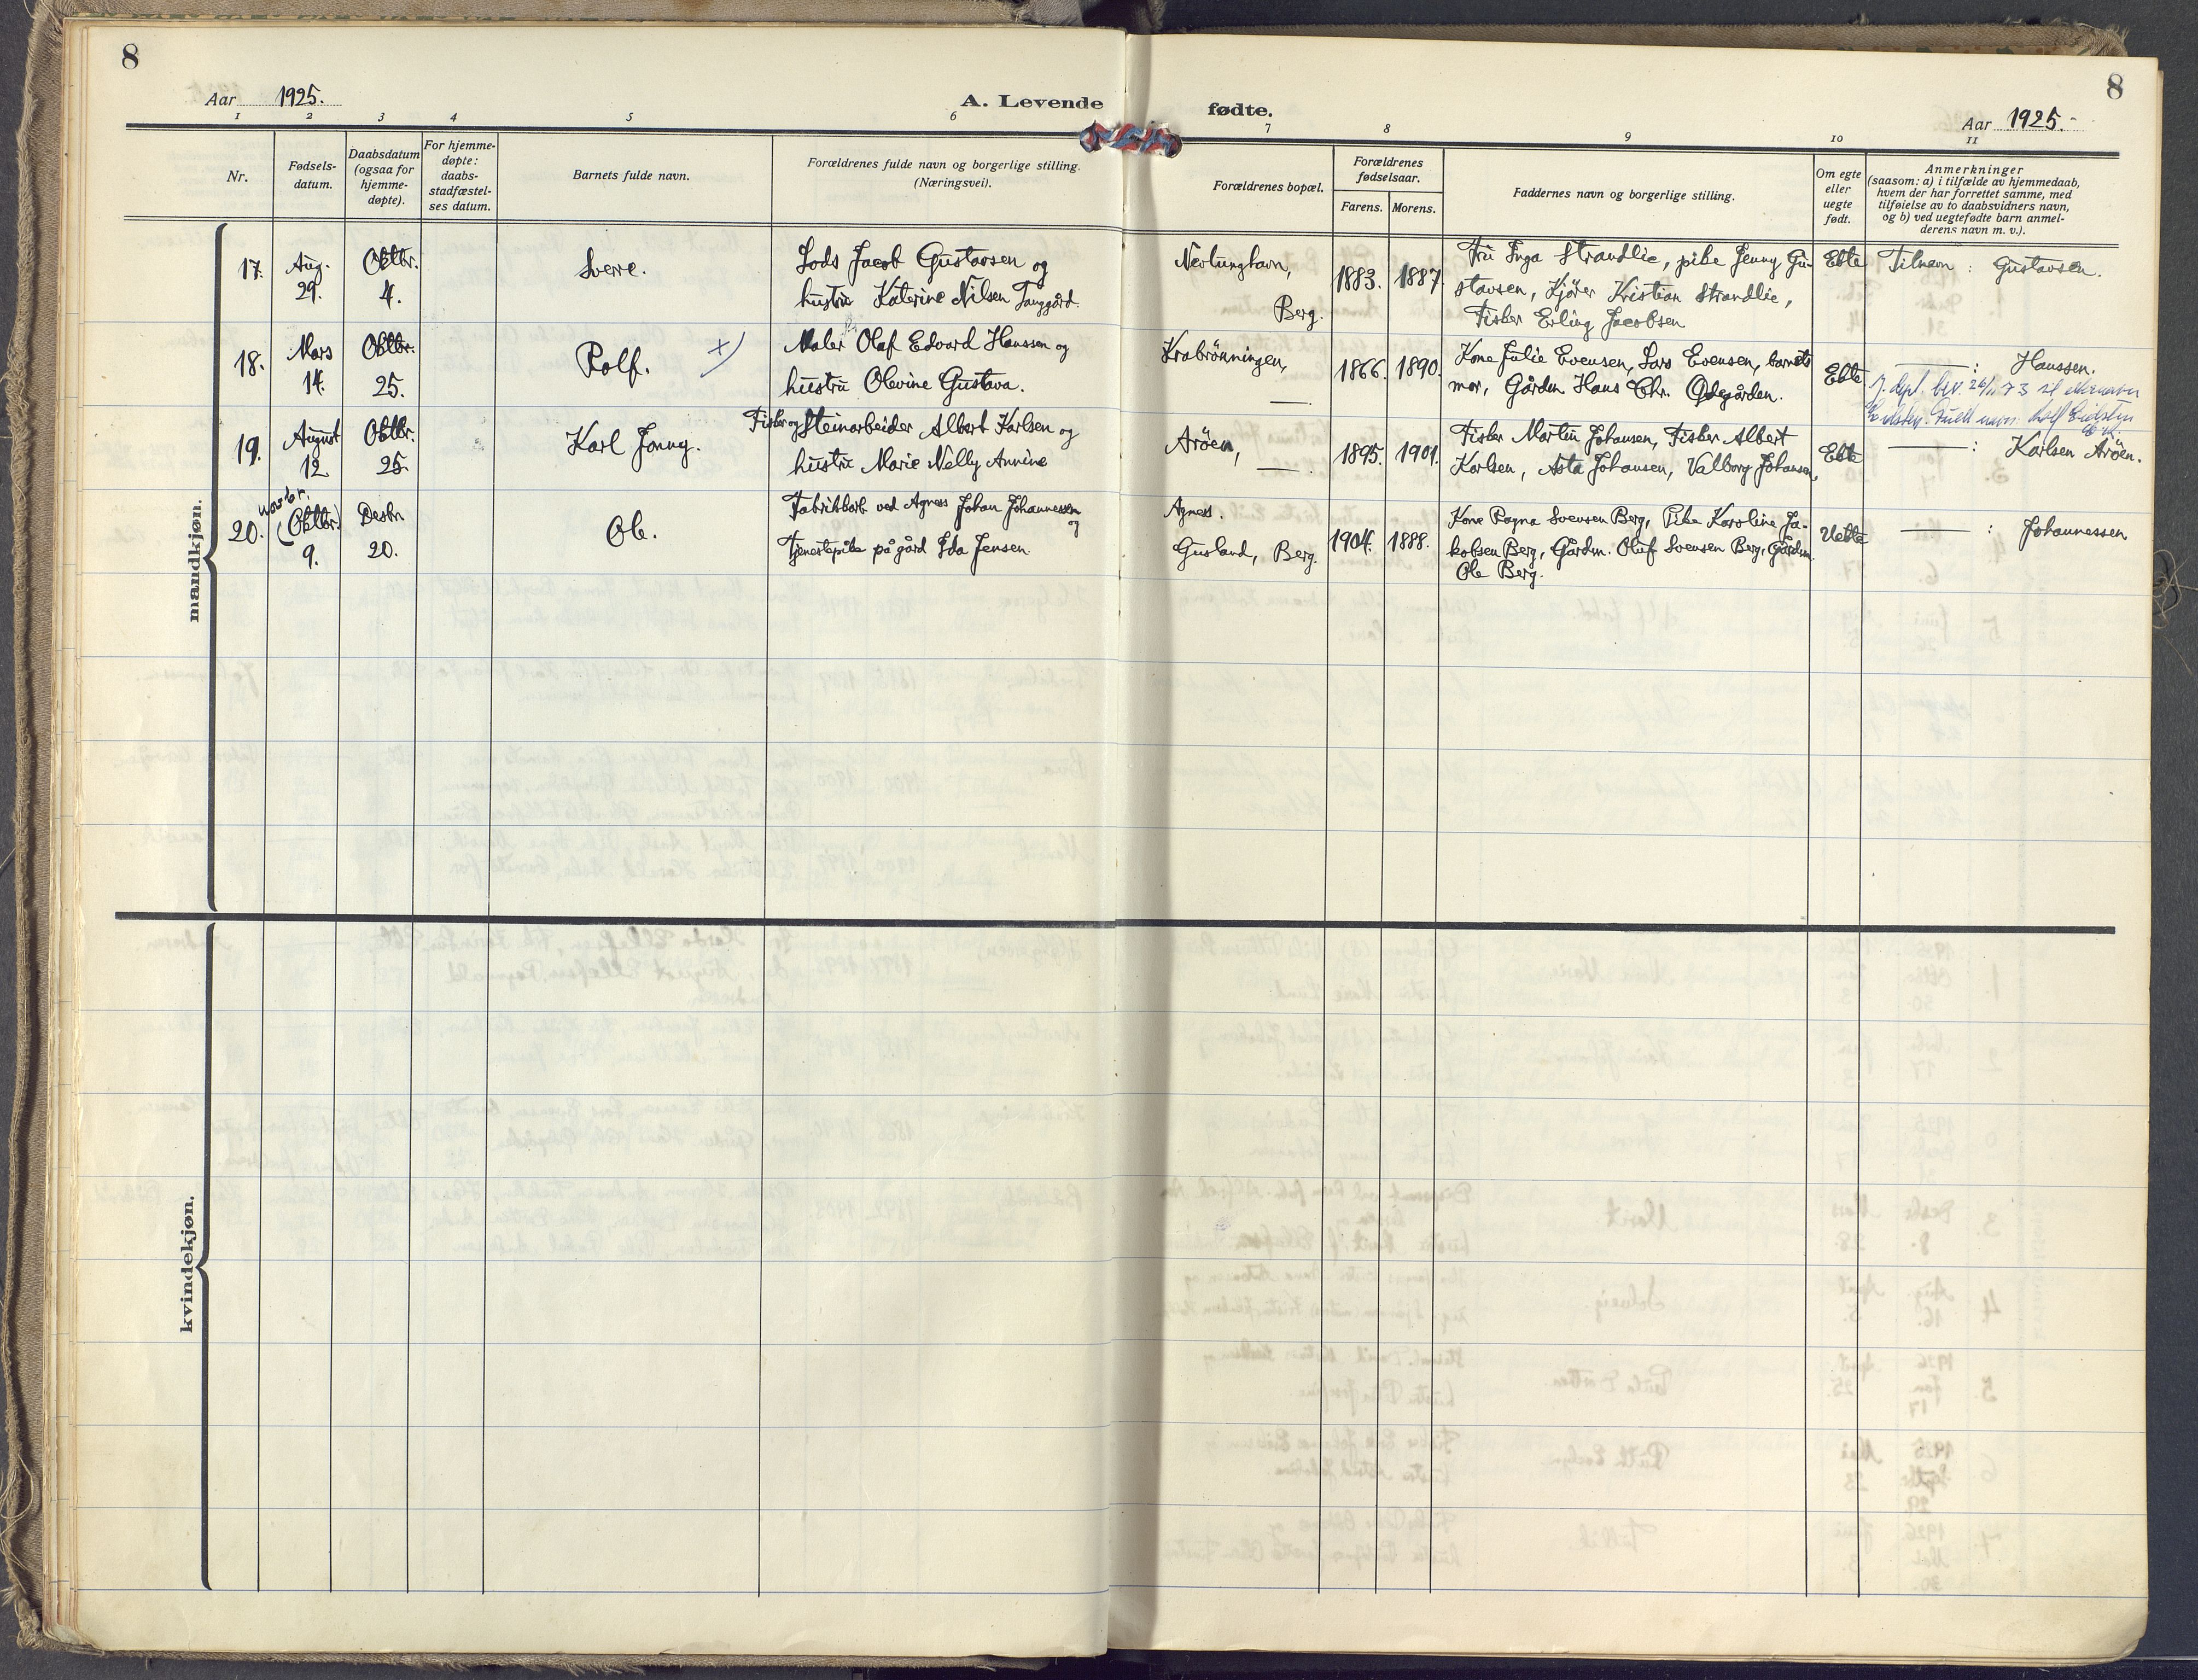 8
8
Aar 1925.
A. Levende
fødte.
Aar 1925.
1
2
3
4
5
6
7
8
9
10
11
Nr.
Fødsels-
datum.
Daabsdatum
(ogsaa for
hjemme-
døpte).
For hjemme-
døpte:
daabs-
stadfæstel-
ses datum.
Barnets fulde navn.
Forældrenes fulde navn og borgerlige stilling.
(Næringsvei).
Forældrenes bopæl.
Forældrenes
fødselsaar.
Farens.
Morens.
Faddernes navn og borgerlige stilling.
Om egte
eller
uegte
født.
Anmerkninger
(saasom: a) i tilfælde av hjemmedaab,
hvem der har forrettet samme, med
tilføielse av to daabsvidners navn,
og b) ved uegtefødte barn anmel-
derens navn m. v.).
mandkjøn.
17.
Aug.
29.
Oktbr.
4.
Sverre.
Lods Jacob Gustavsen og
hustru Katerine Nilsen Tanggård.
Nevlunghavn,
Berg.
1883.
1887.
Fru Inga Strandlie, pike Jenny Gu-
stavsen, Kjører Kristian Strandlie,
Fisker Erling Jacobsen
Ekte
Tilnavn : Gustavsen.
18.
Mars
14.
Oktbr.
25.
Rolf.
x)
Maler Olaf Edvard Hanssen og
hustru Olevine Gustava.
Krabrönningen,
—
1866.
1890.
Kone Julie Evensen, Lars Evensen, barnets
mor, Gårdm. Hans Chr. Ødegården.
Ekte
— : Hanssen.
J. dept. bev. 26/11 73 til etternavn
Eidsten. Fullt navn: Rolf Eidsten
19.
August
12
Oktbr.
25.
Karl Jonny.
Fisker og Steinarbeider Albert Karlsen og
hustru Marie Nelly Annine
Aröen,
—
1895.
1901.
Fisker Martin Johansen, Fisker Albert
Karlsen, Asta Johansen, Valborg Johansen,
Ekte
— : Karlsen Aröen.
20.
Novbr.
(Oktbr.)
9.
Desbr.
20.
Ole.
Fabrikkarb. ved Agness Johan Johannessen
og
Tjenestepike på gård Ida Jensen.
Agness.
Gusland, Berg.
1904.
1888.
Kone Ragna Svensen Berg, Pike Karoline Ja-
kobsen Berg, Gårdm. Oluf Svensen Berg, Gårdm.
Ole Berg.
Uekte
— : Johannessen
kvindekjøn.